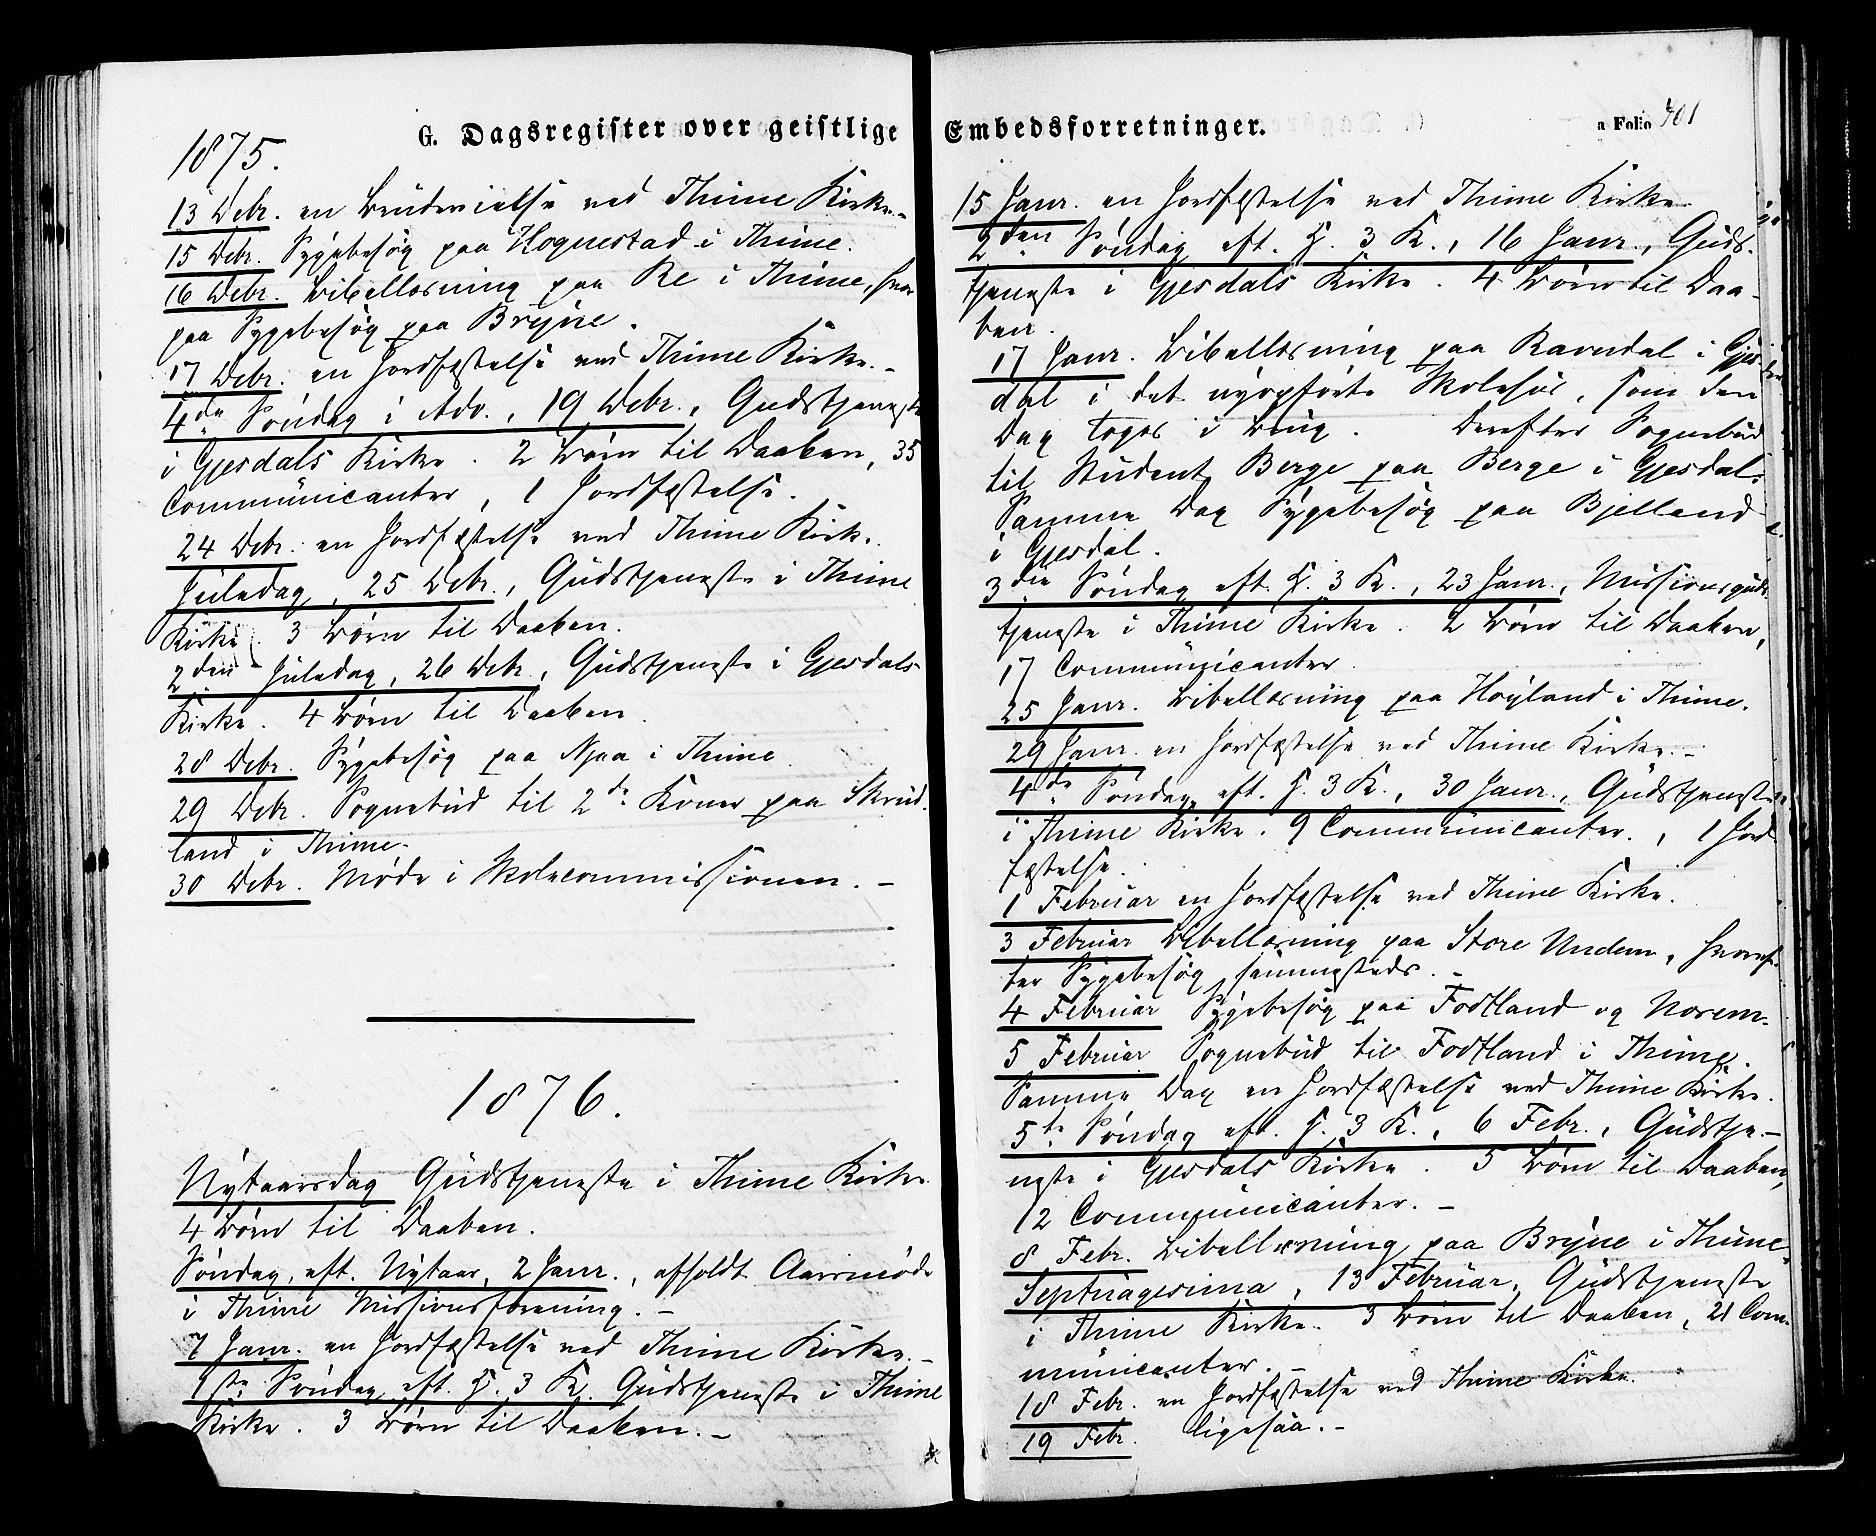 G. Dagsregister over geistlige
1875.
13 Debr. en Brudevielse ved Thime Kirke.-
15 Debr. Sygebesøg paa Hognestad i Thime.
16 Debr. Bibellæsning paa Re i Thime, hvor
paa Sygebesøg paa Bryne.
17 Debr. en Jordfæstelse ved Thime Kirke.-
4de Søndag i Adv., 19 Debr., Gudstjeneste
i Gjesdals Kirke. 2 Børn til Daaben, 35
Communicanter, 1 Jordfæstelse.
24 Debr. en Jordfæstelse ved Thime Kirke.
Juledag, 25 Debr., Gudstjeneste i Thime
Kirke. 3 Børn til Daaben.
2den Juledag, 26 Debr., Gudstjeneste i Gjesdals
Kirke. 4 Børn til Daaben.
28 Debr. Sygebesøg paa Njaa i Thime.
29 Debr. Sognebud til 2de Koner paa Skrud-
land i Thime.
30 Debr. Møde i Skolecommissionen.-
1876.
Nytaarsdag Gudstjeneste i Thime Kirke
4 Børn til Daaben.
Søndag eft. Nytaar, 2 Janr., afholdt Aarsmøde
i Thime Missionsforening.-
7 Janr. en Jordfæstelse ved Thime Kirke.-
1ste Søndag eft. H. 3 K. Gudstjeneste i Thime
Kirke. 3 Børn til Daaben.-
Embedsforretninger.
a Folio 401
15 Janr. en Jordfæstelse ved Thime Kirke
2den Søndag eft. H. 3 K., 16 Janr., Guds-
tjeneste i Gjesdals Kirke. 4 Børn til Daa-
ben.
17 Janr. Bibellæsning paa Ravndal i Gjes-
dal i det nyopførte Skolehus, som den
Dag toges i Brug. Derefter Sognebud
til Student Berge paa Berge i Gjesdal.
Samme Dag Sygebesøg paa Bjelland
i Gjesdal.
3die Søndag eft. H. 3 K., 23 Janr., Missionsguds-
tjeneste i Thime Kirke. 2 Børn til Daaben,
17 Communicanter.
25 Janr. Bibellæsning paa Høyland i Thime.
29 Janr. en Jordfæstelse ved Thime Kirke.-
4de Søndag eft. H. 3 K., 30 Janr., Gudstjeneste
i Thime Kirke. 9 Communicanter., 1 Jord-
fæstelse.
1 Februar en Jordfæstelse ved Thime Kirke.
3 Februar Bibellæsning paa Store Undem, hvoref-
ter Sygebesøg sammesteds.-
4 Februar Sygebesøg paa Fodtland og Norem.
5 Februar Sognebud til Fodtland i Thime.
Samme Dag en Jordfæstelse ved Thime Kirke.
5te Søndag eft. H. 3 K., 6 Febr., Gudstje-
neste i Gjesdals Kirke. 5 Børn til Daaben,
12 Communicanter.-
8 Febr. Bibellæsning paa Bryne i Thime.
Septuagesima, 13 Februar, Gudstjeneste
i Thime Kirke. 3 Børn til Daaben, 21 Com-
municanter.-
18 Febr. en Jordfæstelse ved Thime Kirke.
19 Febr. ligesaa.-